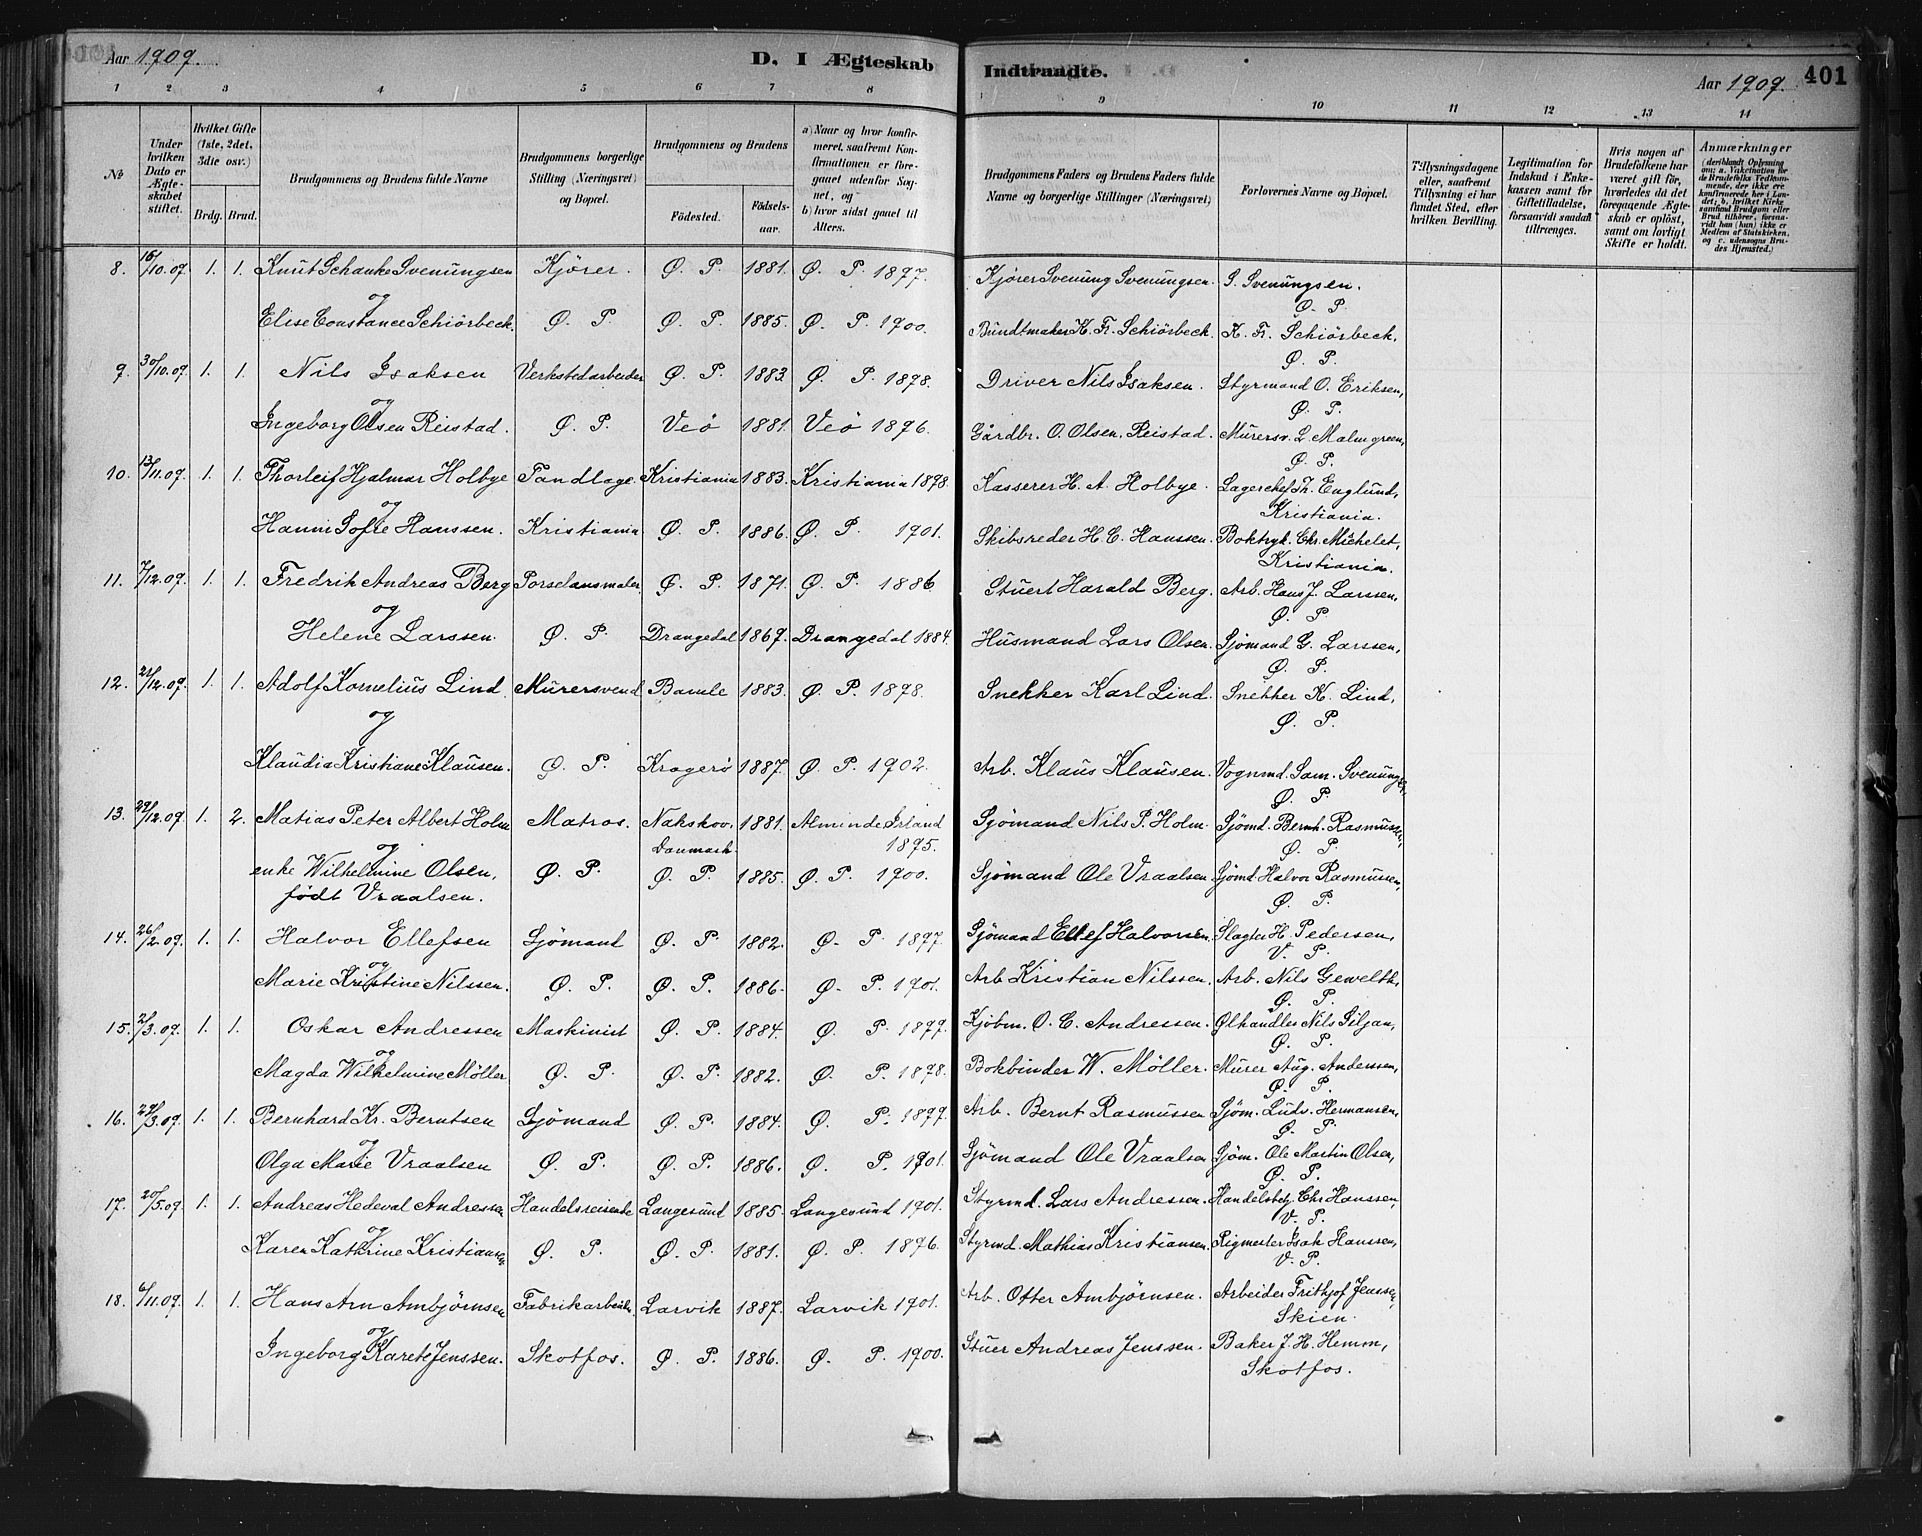 Aar 1909.
D. I Ægteskab Indtraadte.
Aar 1909. 401
1 2 3 4 5 6 7 8 9 10 11 12 13 14
No
Under hvilken Dato er Ægteskabet stiftet.
Hvilket Gifte (1ste, 2det, 3die osv.)
Brdg. Brud.
Brudgommens og Brudens fulde Navne
Brudgommens borgerlige Stilling (Næringsvei) og Bopæl.
Brudgommens og Brudens
Födested. Födsels-aar.
a) Naar og hvor konfirmeret, saafremt Konfirmationen er foregaaet udenfor Sognet, og
b) hvor sidst gaaet til Alters.
Brudgommens Faders og Brudens Faders fulde Navne og borgerlige Stillinger (Næringsvei)
Forlovernes Navne og Bopæl.
Tillysningsdagene eller, saafremt Tillysning ei har fundet Sted, efter hvilken Bevilling.
Legitimation for Indskud i Enkekassen samt for Giftetilladelse, forsaavidt saadan tiltrænges.
Hvis nogen af Brudefolkene har været gift för, hvorledes da det foregaaende Ægteskab er oplöst, samt om lovligt Skifte er holdt.
Anmærkninger
(deriblandt Oplysning om: a. Vakcination for de Brudefolks Vedkommende, der ikke ere konfirmerede her i Landet; b. hvilket Kirkesamfund Brudgom eller Brud tilhörer, forsaavidt han (hun) ikke er Medlem af Statskirken, og c. udensogns Brudes Hjemsted.)
8. 16/10.09. 1. 1. Knut Schanke Svenungsen Kjører. Ø. P. 1881. Ø. P. 1897. Kjører Svenung Svenungsen. S. Svenungsen.
og Ø. P.
Elise Constance Schiörbeck. Ø. P. Ø. P. 1885. Ø. P. 1900. Bundtmaker K. Fr. Schiörbeck. K. Fr. Schiörbeck,
Ø. P.
9. 30/10.09. 1. 1. Nils Isaksen Verkstedarbeider Ø. P. 1883. Ø. P. 1898. Driver Nils Isaksen. Styrmand O. Eriksen,
og Ø. P.
Ingeborg Olsen Reistad. Ø. P. Veö 1881. Veö 1896. Gårdbr. O. Olsen Reistad. Murersv. L. Malmgreen,
Ø. P.
10. 13/11.09. 1. 1. Thorleif Hjalmar Holbye Tandlæge Kristiania 1883. Kristiania 1898. Kasserer H. A. Holbye. Lagerchef Th. Englund,
og Kristiania.
Hanni Sofie Hanssen. Kristiania Ø. P. 1886. Ø. P. 1901. Skibsreder H. C. Hanssen. Boktryk. Chr. Michelet,
Kristiania.
11. 7/12.09. 1. 1. Fredrik Andreas Berg Porselansmaler Ø. P. 1871. Ø. P. 1886 Stuert Harald Berg. Arb. Hans J. Larssen,
og Ø. P.
Helene Larssen. Ø. P. Drangedal 1869. Drangedal 1884. Husmand Lars Olsen. Sjømand G. Larssen,
Ø. P.
12. 21/12.09. 1. 1. Adolf Kornelius Lind Murersvend Bamle 1883. Ø. P. 1898. Snekker Karl Lind. Snekker K. Lind,
og Ø. P.
Klaudia Kristiane Klausen. Ø. P. Kragerø 1887. Ø. P. 1902. Arb. Klaus Klausen. Vognmd. Sam.
Ø. P.
13. 29/12.09. 1. 2. Matias Peter Albert Holm Matros. Nakskov, 1881. Alminde 1895. Sjømand Nils P. Holm. Sjømd. Bernh. Rasmussen,
og Danmark. Ø. P.
enke Wilhelmine Olsen, Ø. P. Ø. P. 1885. Ø. P. 1900. Sjømand Ole Vraalsen Sjømd. Halvor Rasmussen,
født Vraalsen. Ø. P.
14. 26/2.09. 1. 1. Halvor Ellefsen Sjömand Ø. P. 1882. Ø. P. 1897. Sjømand Ellef Halvorsen. Slagter H. Pedersen,
og V. P.
Marie Kristine Nilssen. Ø. P. Ø. P. 1886. Ø. P. 1901. Arb. Kristian Nilssen. Arb. Nils Gewelth,
Ø. P.
15. 2/3.09. 1. 1. Oskar Andressen Maskinist Ø. P. 1884. Ø. P. 1899. Kjöbm. O. C. Andressen. Ølhandler Nils Siljan,
og Ø. P.
Magda Wilhelmine Möller Ø. P. Ø. P. 1882. Ø. P. 1898. Bokbinder W. Möller. Murer Aug. Anderssen,
Ø. P.
16. 29/3.09. 1. 1. Bernhard Kr. Berntsen Sjömand Ø. P. 1884. Ø. P. 1899. Arb. Bernt Rasmussen Sjøm. Ludv. Hermansen,
og Ø. P.
Olga Marie Vraalsen Ø. P. Ø. P. 1886. Ø. P. 1901. Sjømand Ole Vraalsen Sjøm. Ole Martin Olsen,
Ø. P.
17. 20/5.09. 1. 1. Andreas Hedeval Andressen Handelsreisende Langesund 1885. Langesund 1901. Styrmd. Lars Andressen. Handelsbetj. Chr. Hanssen,
og V. P.
Karen Kathrine Kristiansen Ø. P. Ø. P. 1881. Ø. P. 1896. Styrmd. Mathias Kristiansen. Rigmester Isak Hanssen,
V. P.
18. 6/11.09. 1. 1. Hans Arn Ambjørnsen Fabrikarbeider Larvik 1887. Larvik 1901. Arb. Otter Ambjørnsen. Arbeider Frithjof Jenssen,
og Skien.
Ingeborg Karete Jenssen. Skotfos. Ø. P. 1886. Ø. P. 1900. Stuer Andreas Jenssen. Baker J. H. Hemm,
Skotfos.